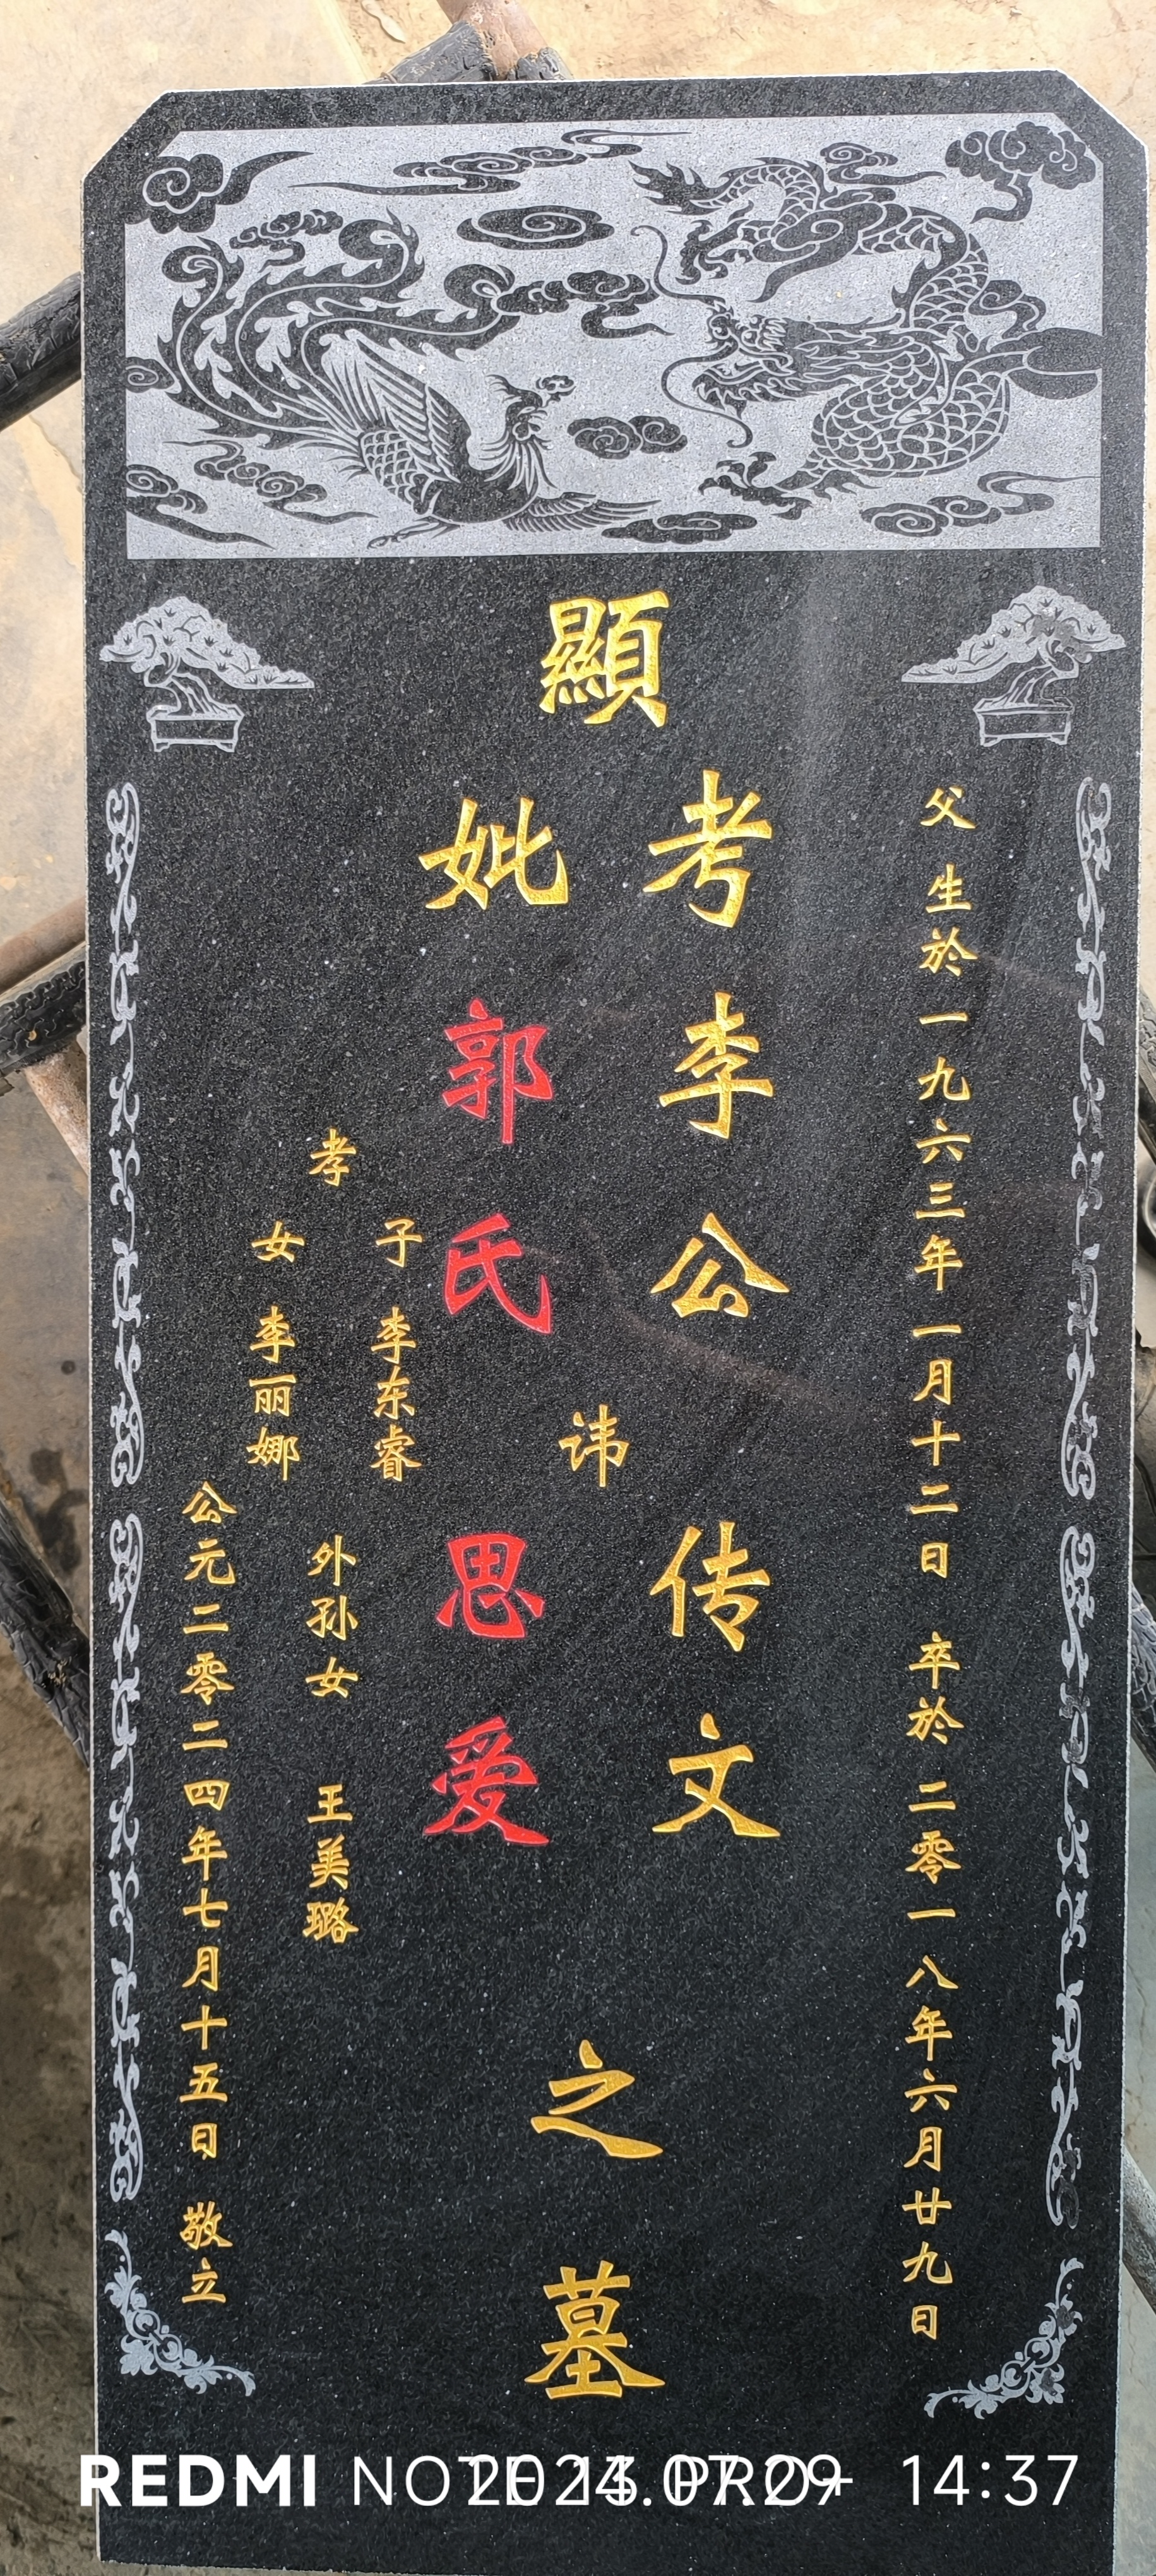 父生於一九六三年一月十二日 卒於二零一八年六月廿九日
顯
考李公 传文
妣郭氏 思爱
讳
之墓
孝
子 李东睿
女 李丽娜
外孙女 王美璐
公元二零二四年七月十五日 敬立
REDMI NOTE 13 PRO+ 2024.07.29 14:37